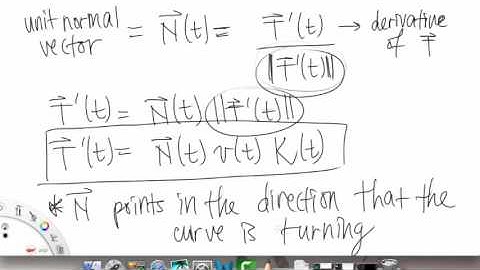 unit normal vector = N⃗(t) = T⃗'(t) / ||T⃗'(t)|| → derivative of T⃗
T⃗'(t) = N⃗(t) ||T⃗'(t)||
T⃗'(t) = N⃗(t) v(t) K(t)
* N⃗ points in the direction that the
curve is turning